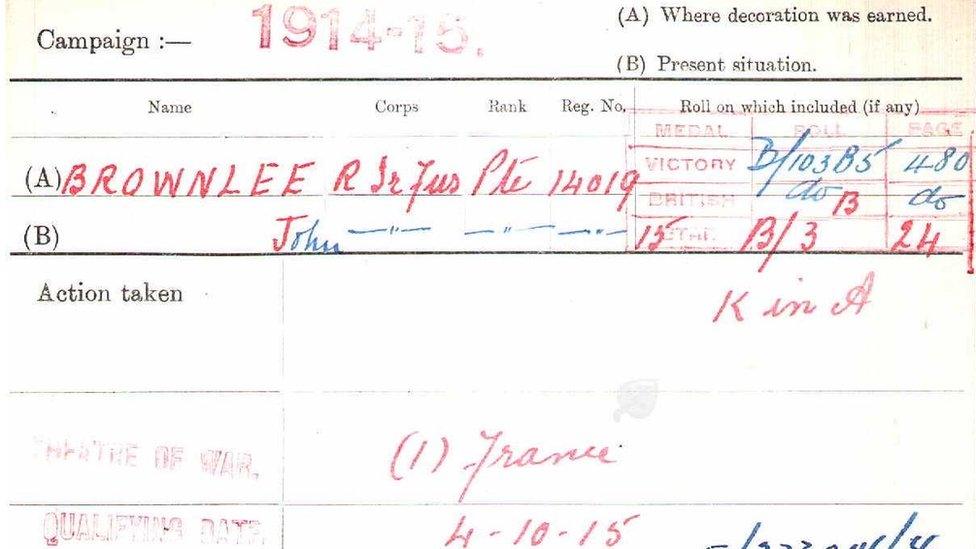 Campaign :— 1914-15. (A) Where decoration was earned.
(B) Present situation.
Name Corps Rank Reg. No. Roll on which included (if any)
MEDAL ROLL PAGE
(A) BROWNLEE R Ir Fus Pte 14019 VICTORY B/103 B5 480
BRITISH do B do
(B) John —"— —"— —"— 15 STAR B/3 24
Action taken K in A
THEATRE OF WAR. (1) France
QUALIFYING DATE. 4-10-15